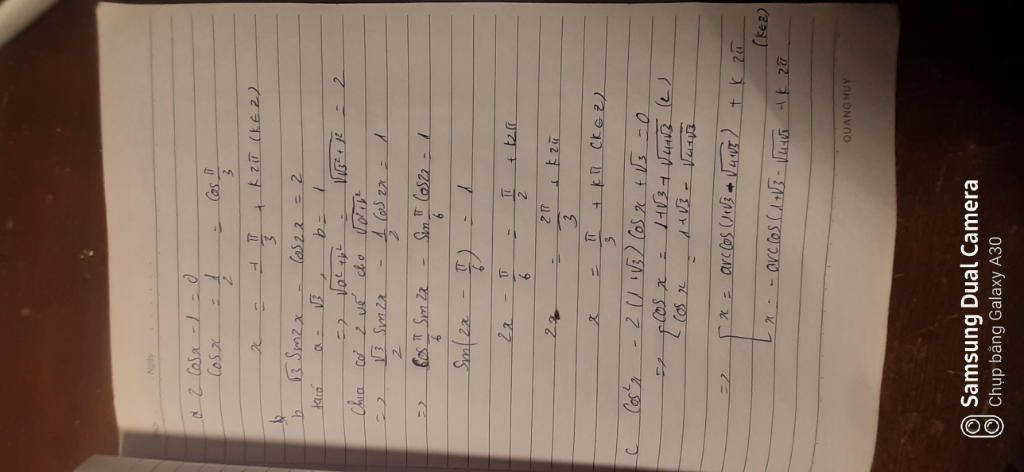 Ngày
a 2 cosx - 1 = 0
cosx = 1/2 = cos π/3
x = ± π/3 + k2π (k∈Z)
b √3 Sin2x - cos2x = 2
a = √3, b = 1
=> √a²+b² = √√3²+1² = 2
Chia cả 2 vế cho √a²+b²
=> √3/2 Sin2x - 1/2 cos2x = 1
=> Cos π/6 Sin2x - Sin π/6 cos2x = 1
Sin(2x - π/6) = 1
2x - π/6 = π/2 + k2π
2x = 2π/3 + k2π
x = π/3 + kπ (k∈Z)
c cos²x - 2(1+√3) cosx + √3 = 0
=> [ cosx = 1+√3 + √4+√3 (L)
cosx = 1+√3 - √4+√3
=> [ x = arccos(1+√3 - √4+√3) + k2π
x = - arccos(1+√3 - √4+√3 + k2π (k∈Z)
QUANG HUY
Samsung Dual Camera
Chụp bằng Galaxy A30